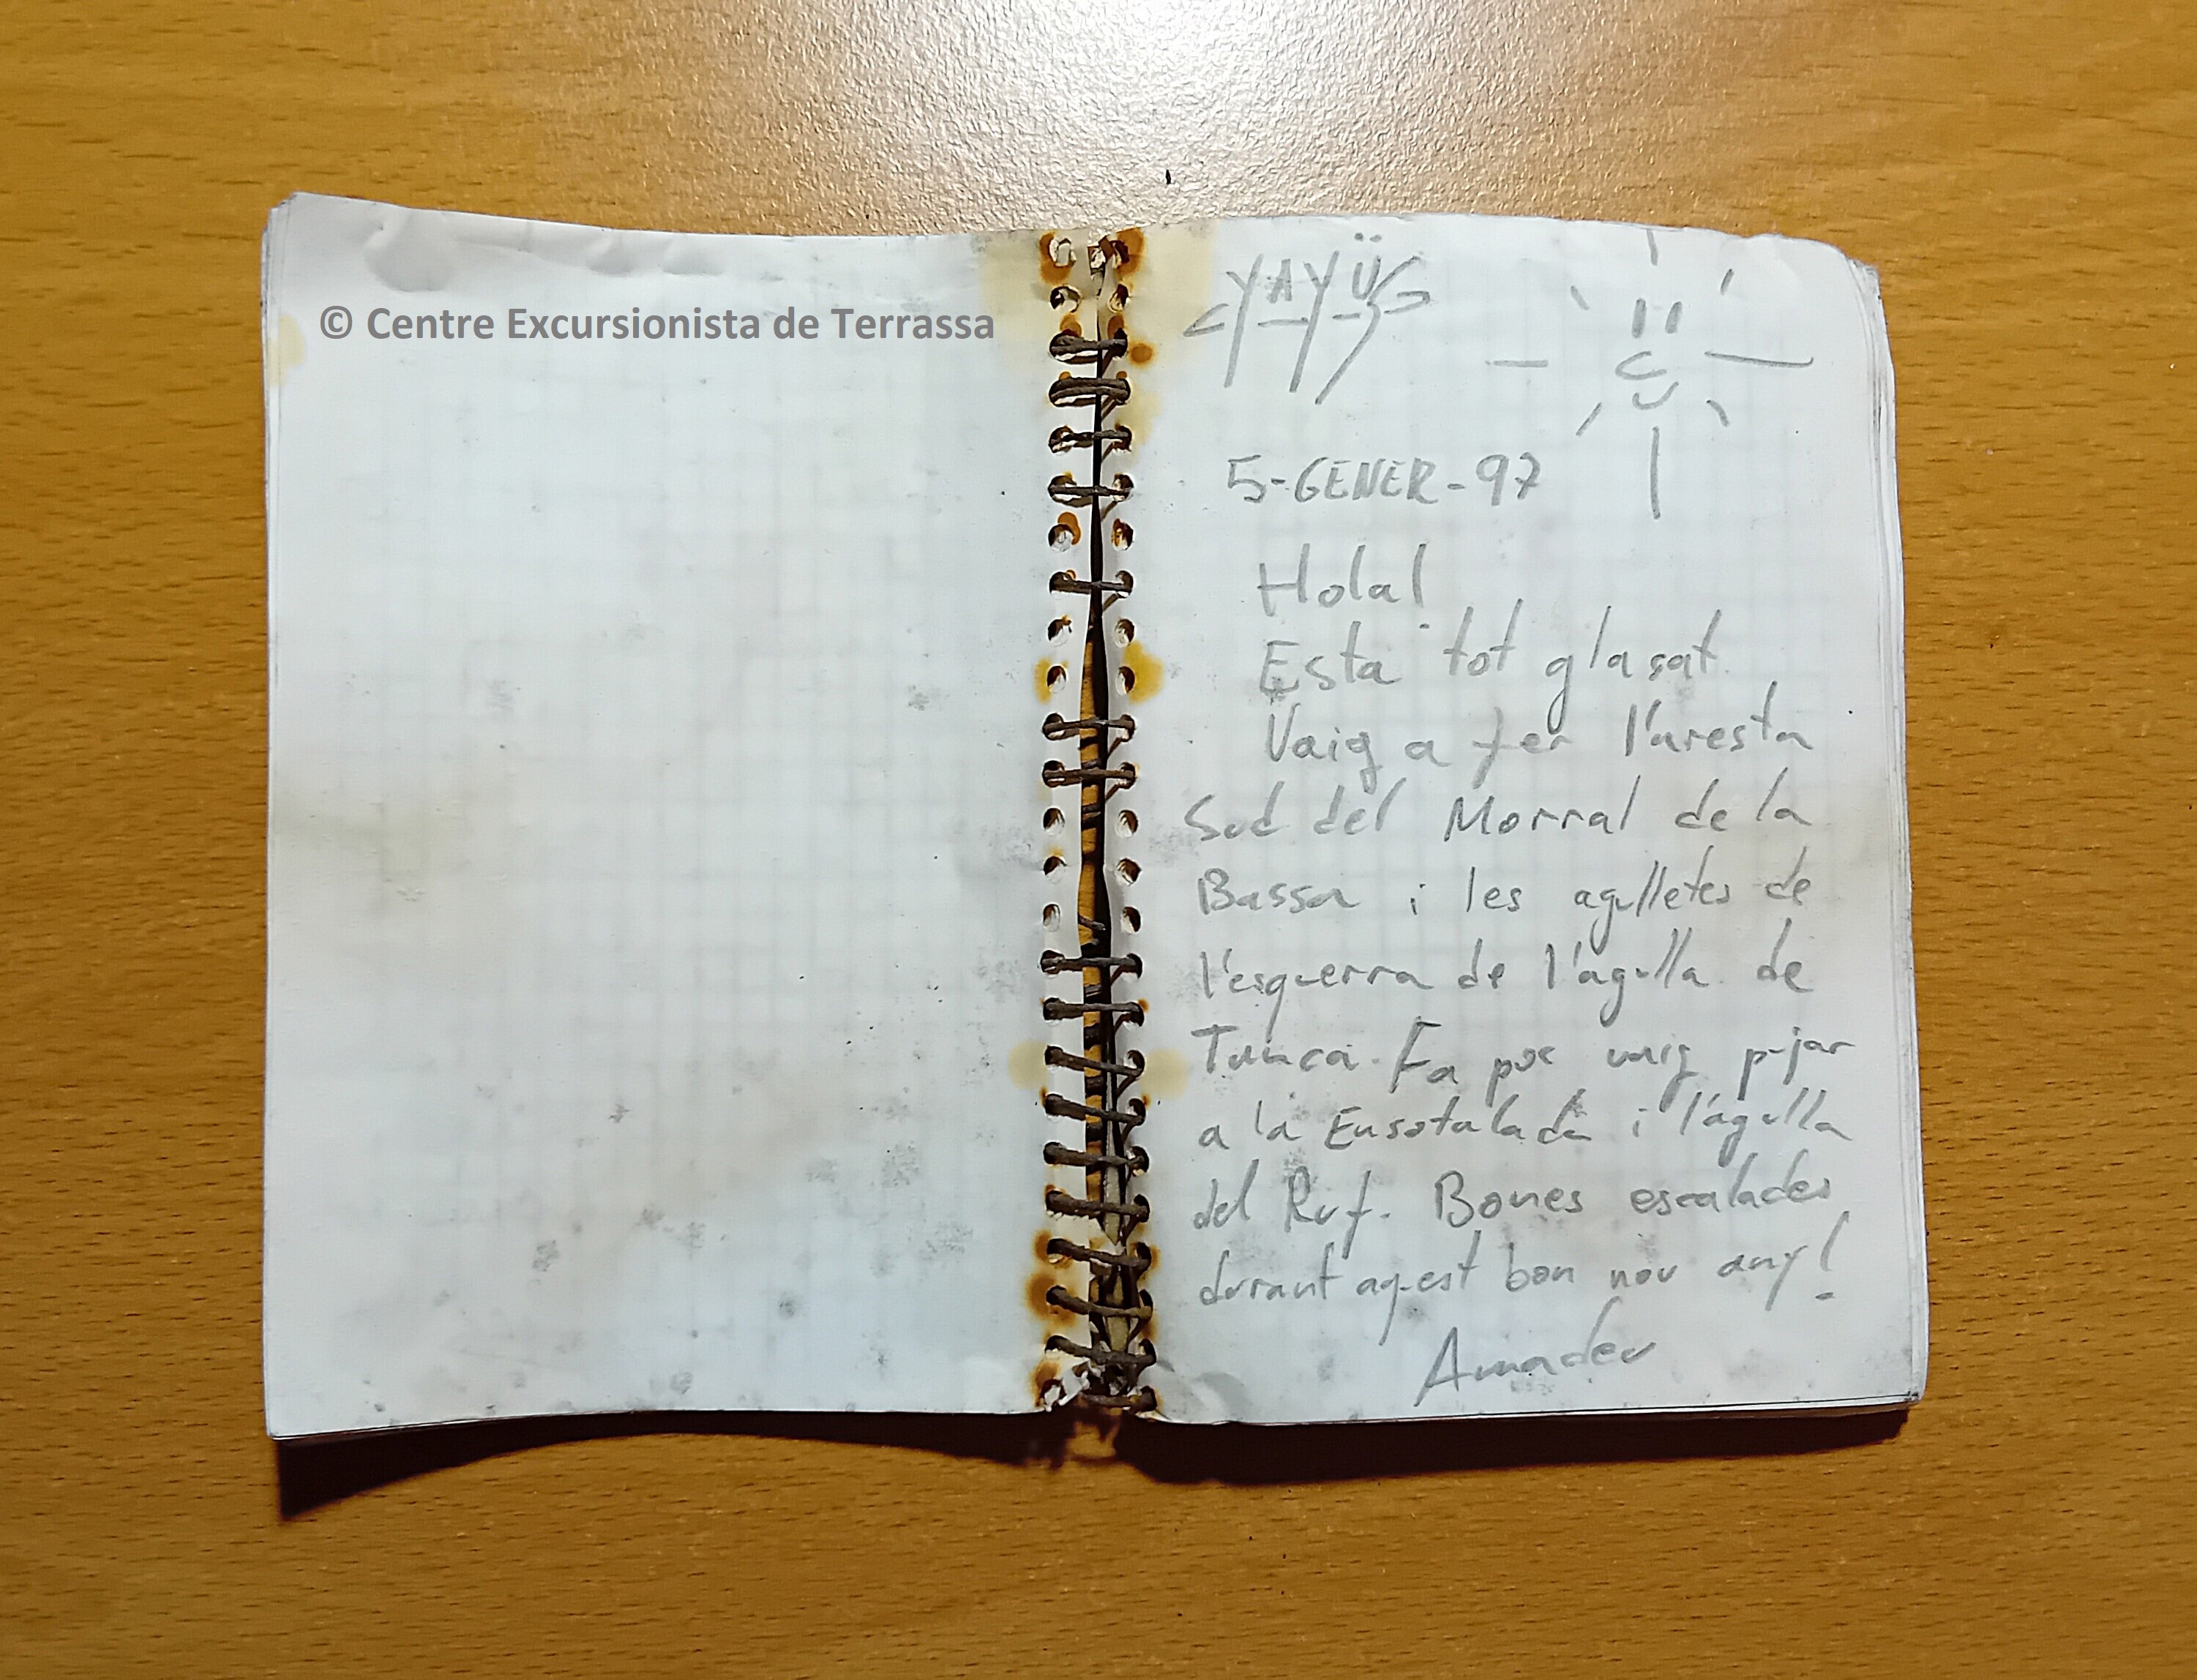 © Centre Excursionista de Terrassa
YAYÜS
5-GENER-97
Hola!
Esta tot glasat.
Vaig a fer l'aresta
Sud del Morral de la
Bassa i les agulletes de
l'esquerra de l'agulla de
Tunca. Fa poc vaig pujar
a la Ensotalada i l'agulla
del Ruf. Bones escalades
durant aquest bon nou any!
Amadeu